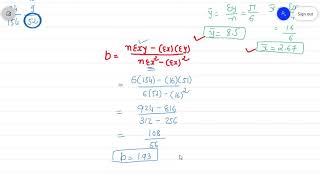 154 52
ȳ = Σy/n = 51/6
ȳ = 8.5
16
6
x̄ = 2.67
b = nΣxy - (Σx)(Σy) / nΣx² - (Σx)²
= 6(154) - (16)(51) / 6(52) - (16)²
= 924 - 816 / 312 - 256
= 108 / 56
b = 1.93
Sign out